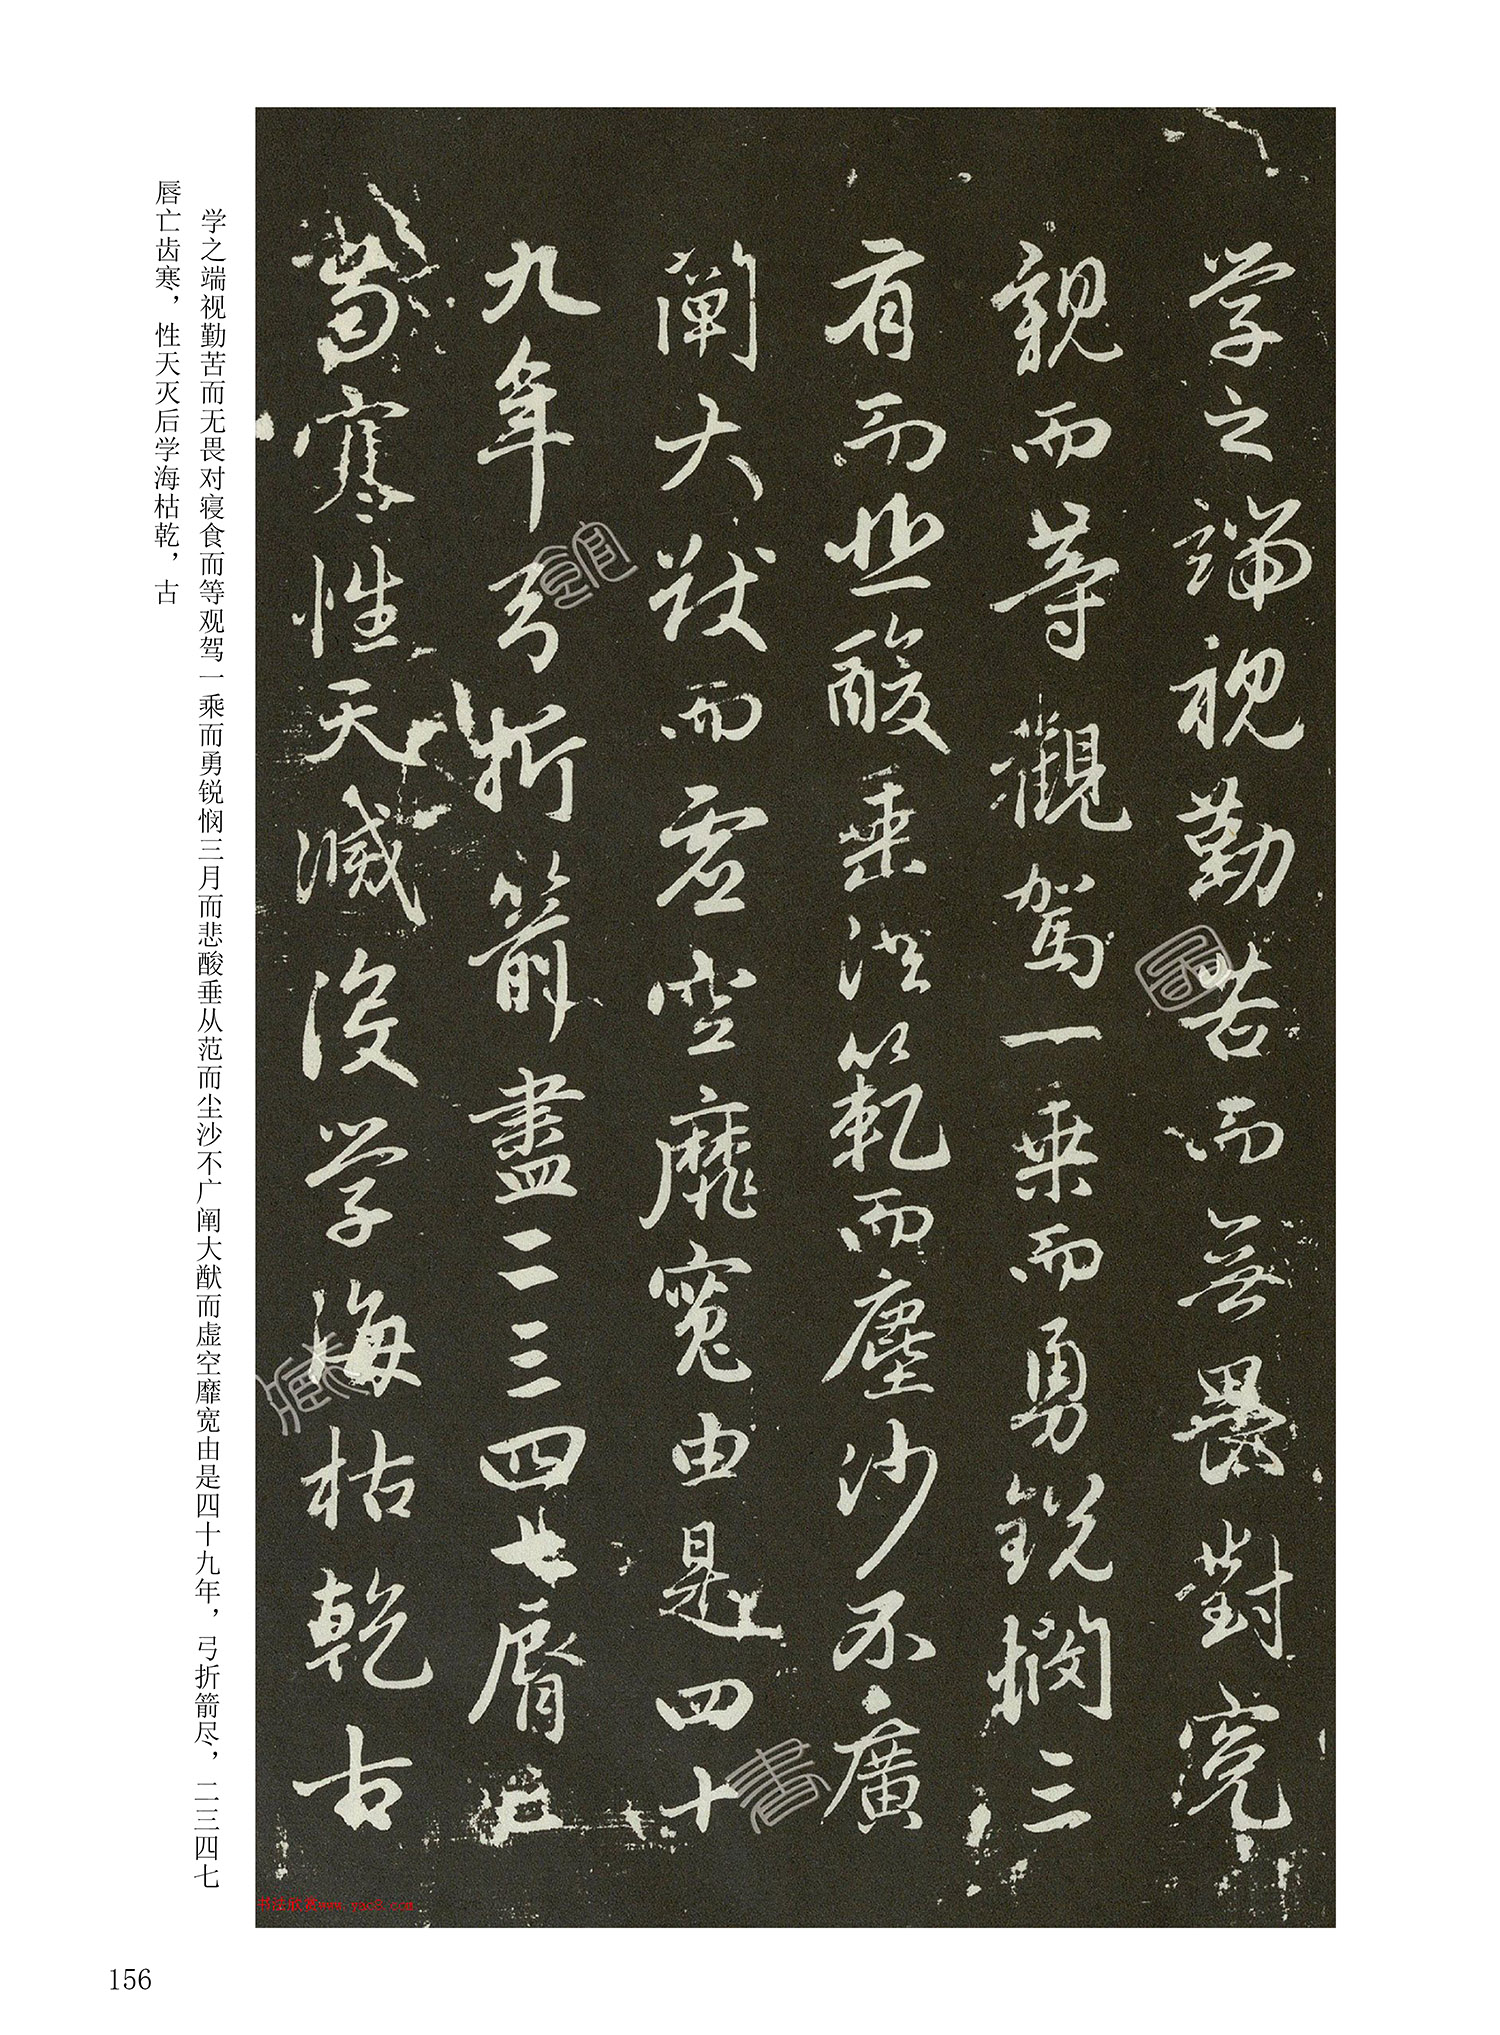 学之端视勤苦而无畏对寝食而等观驾一乘而勇锐悯三月而悲酸垂从范而尘沙不广阐大猷而虚空靡宽由是四十九年，弓折箭尽，二三四七
唇亡齿寒，性天灭后学海枯乾，古
學之端視勤苦而無畏對寢
親而等觀駕一乗而勇銳憫三
有而悲酸垂洪範而塵沙不廣
闡大猷而虚空靡寬由是四十
九年弓折箭盡二三四七脣亡
齒寒性天滅没學海枯乾古
书法欣赏www.yac8.com
156